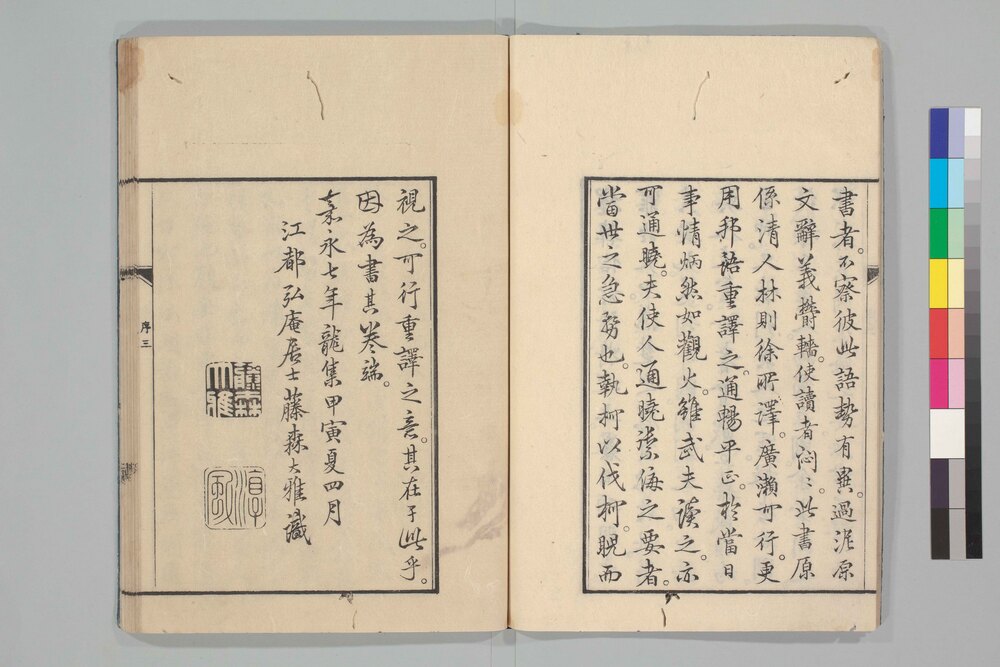 書者。不察彼此語勢有異。過泥原
文辭義欝轖。使讀者悶〻。此書原
係清人林則徐所譯。廣瀬可行。更
用邦語重譯之。通暢平正。於當日
事情炳然如觀火。雖武夫讀之。亦
可通曉。夫使人通曉禦侮之要者。
當世之急務也。執柯以伐柯。睨而
視之。可行重譯之意。其在于此乎。
因為書其卷端。
嘉永七年龍集甲寅夏四月
江都弘庵居士藤森大雅識
藤森大雅
淳風
序三